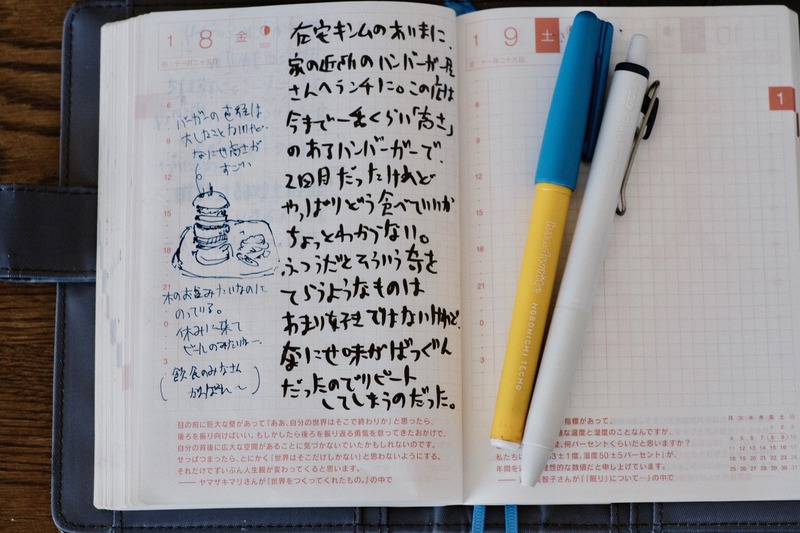 1 8 金
バーガーの直径は
大したことないけど、
なにせ高さが
すごい
木のお盆みたいなのに
のっている。
休みに来て
ビールのみたいなー
(飲食のみなさん
がんばれ〜)
在宅キンムのあいまに、
家の近所のハンバーガー屋
さんへランチに。この店は
今まで一番くらい「高さ」
のあるハンバーガーで、
2回目だったけれど
やっぱりどう食べていいか
ちょっとわからない。
ふつうだとそういう奇を
てらうようなものは
あまり好きではないけれど、
なにせ味がばつぐん
だったのでリピート
してしまうのだった。
目の前に巨大な壁があって『ああ、自分の世界はそこで終わりか』と思ったら、
後ろを振り向けばいい。もしかしたら後ろを振り返る勇気を怠ってきたおかげで、
自分の背後に広大な空間があることに気づかないでいたかもしれないのです。
せっぱつまったら、とにかく『世界はそこだけじゃない』と思わないようにする。
それだけでずいぶん人生観が変わってくると思います。
—— ヤマザキマリさんが『世界をつくってくれたもの。』の中で
1 9 土
1
HOBONICHI TECHO
指標があって、
な温度と湿度のことなんですが、
何パーセントくらいだと思いますか?
私たち 33±1度、湿度50±5パーセントが、
年間を 想的な数値だと申し上げています。
智子さんが『「眠り」について…』の中で
月 火 水 木 金 土 日